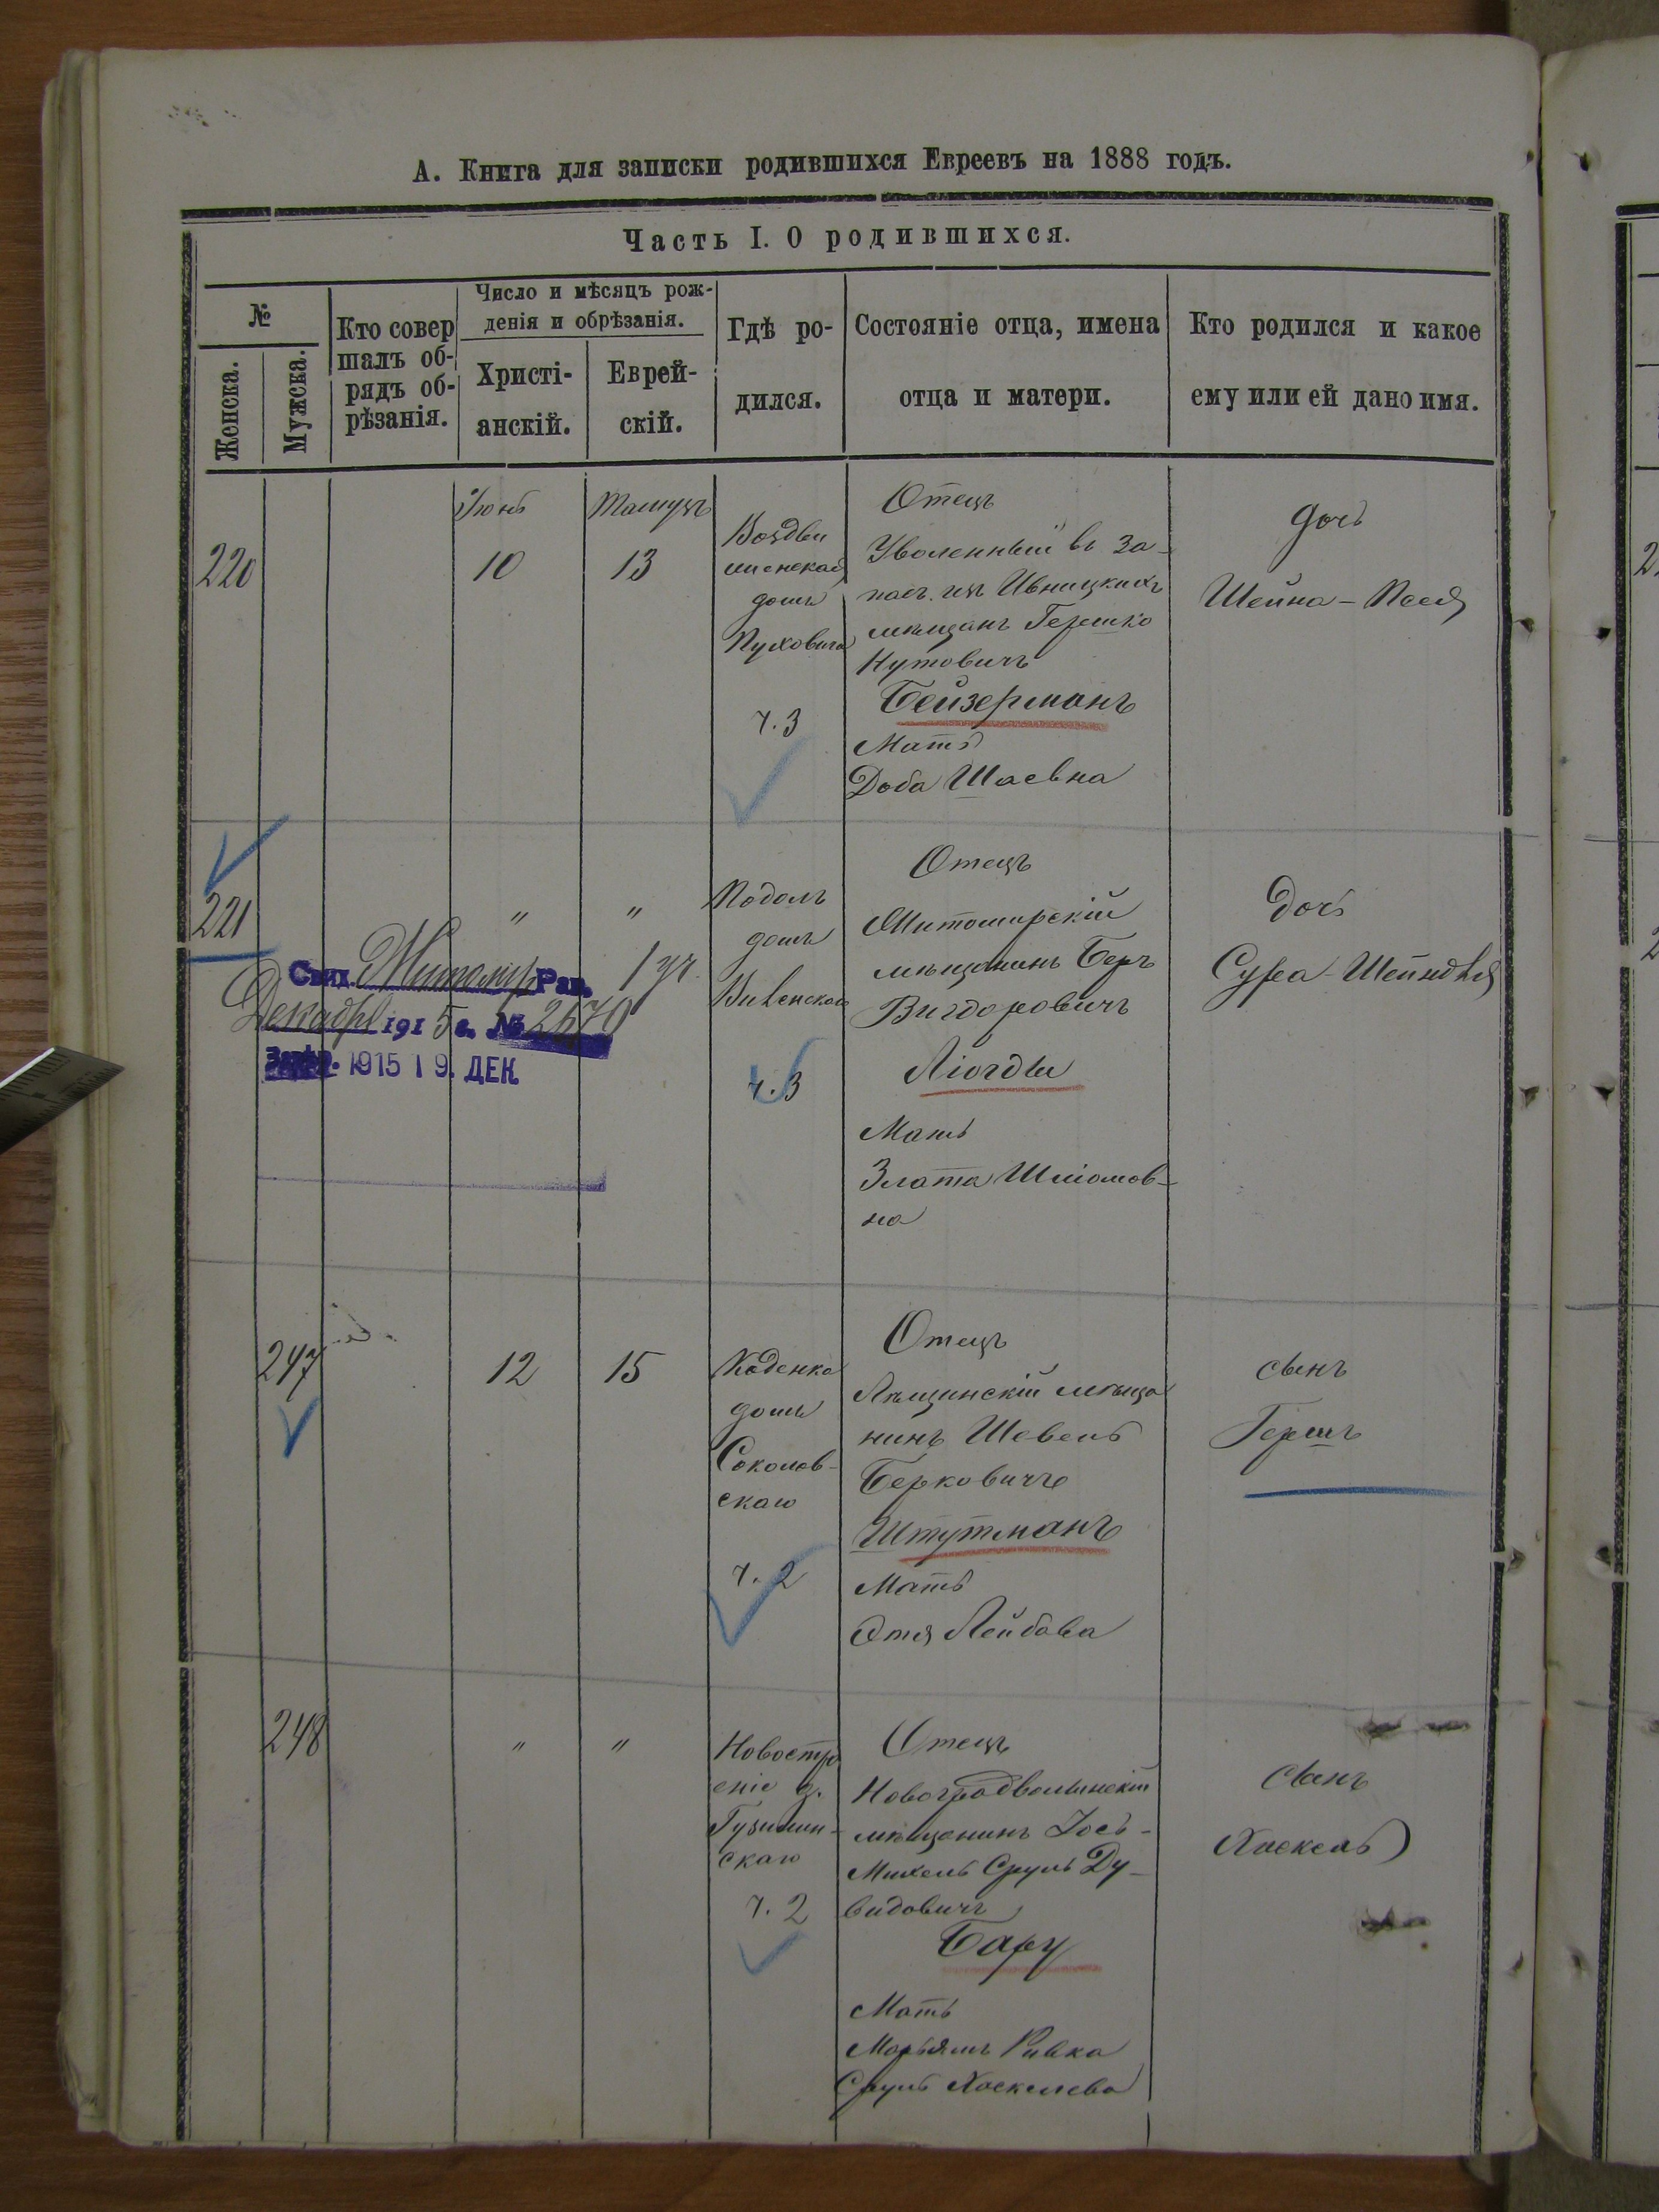 А. Книга для записки родившихся Евреевъ на 1888 годъ.
Часть I. О родившихся.
№
Женска.
Мужска.
Кто совер
шалъ об-
рядъ об-
рѣзанія.
Число и мѣсяцъ рож-
денія и обрѣзанія.
Христі-
анскій.
Еврей-
скій.
Гдѣ ро-
дился.
Состояніе отца, имена
отца и матери.
Кто родился и какое
ему или ей дано имя.
220
Іюнь
10
Тамузъ
13
Воздви
женская
домъ
Пуховича
ч. 3
Отецъ
Уволенный въ за-
пас. изъ Ивницкихъ
мѣщанъ Гершко
Нутовичъ
Бейзерманъ
Мать
Доба Шаевна
дочь
Шейна-Песя
221
"
"
Подолъ
домъ
Виленскаго
ч. 3
Отецъ
Житомирскій
мѣщанинъ Беръ
Вигдоровичъ
Мать
Злата Шліомов-
на
дочь
Сура-Шейндля
Свид. Житомир Рав.
Декабря 1915 г. № 2670
1915 19. ДЕК
247
12
15
Каденка
домъ
Соколов-
скаго
ч. 2
Отецъ
Лѣщинскій мѣща
нинъ Шевель
Берковичъ
Штутманъ
Мать
Этя Лейбова
сынъ
Гершъ
248
"
"
Новостро
еніе д.
скаго
ч. 2
Отецъ
Новоградволынскій
мѣщанинъ Іось-
Михель Сруль Ду-
видовичъ
Бару
Мать
Марьямъ Ривка
Сруль Хаскелева
сынъ
Хаскель